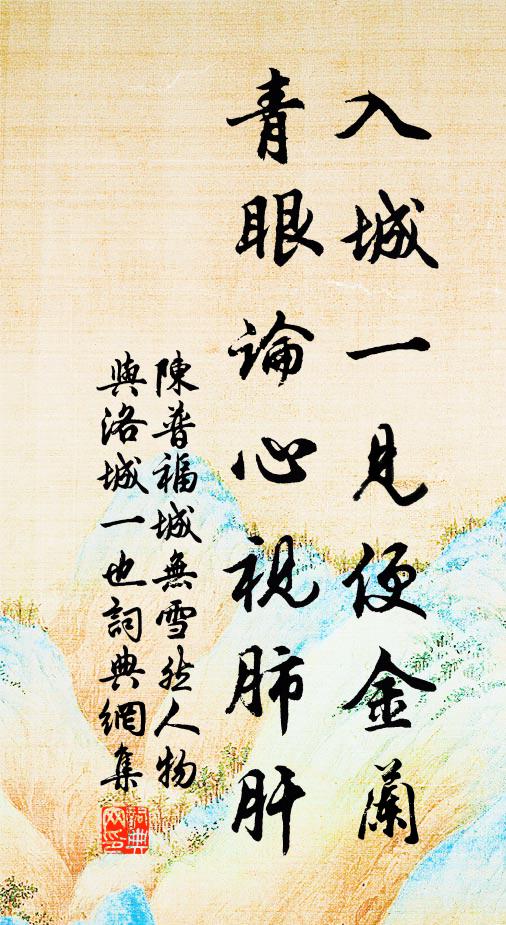 入城一見便金蘭
青眼論心視肺肝
陳普福城無雪然人物
與洛城一也詞典網集
詞典
网印